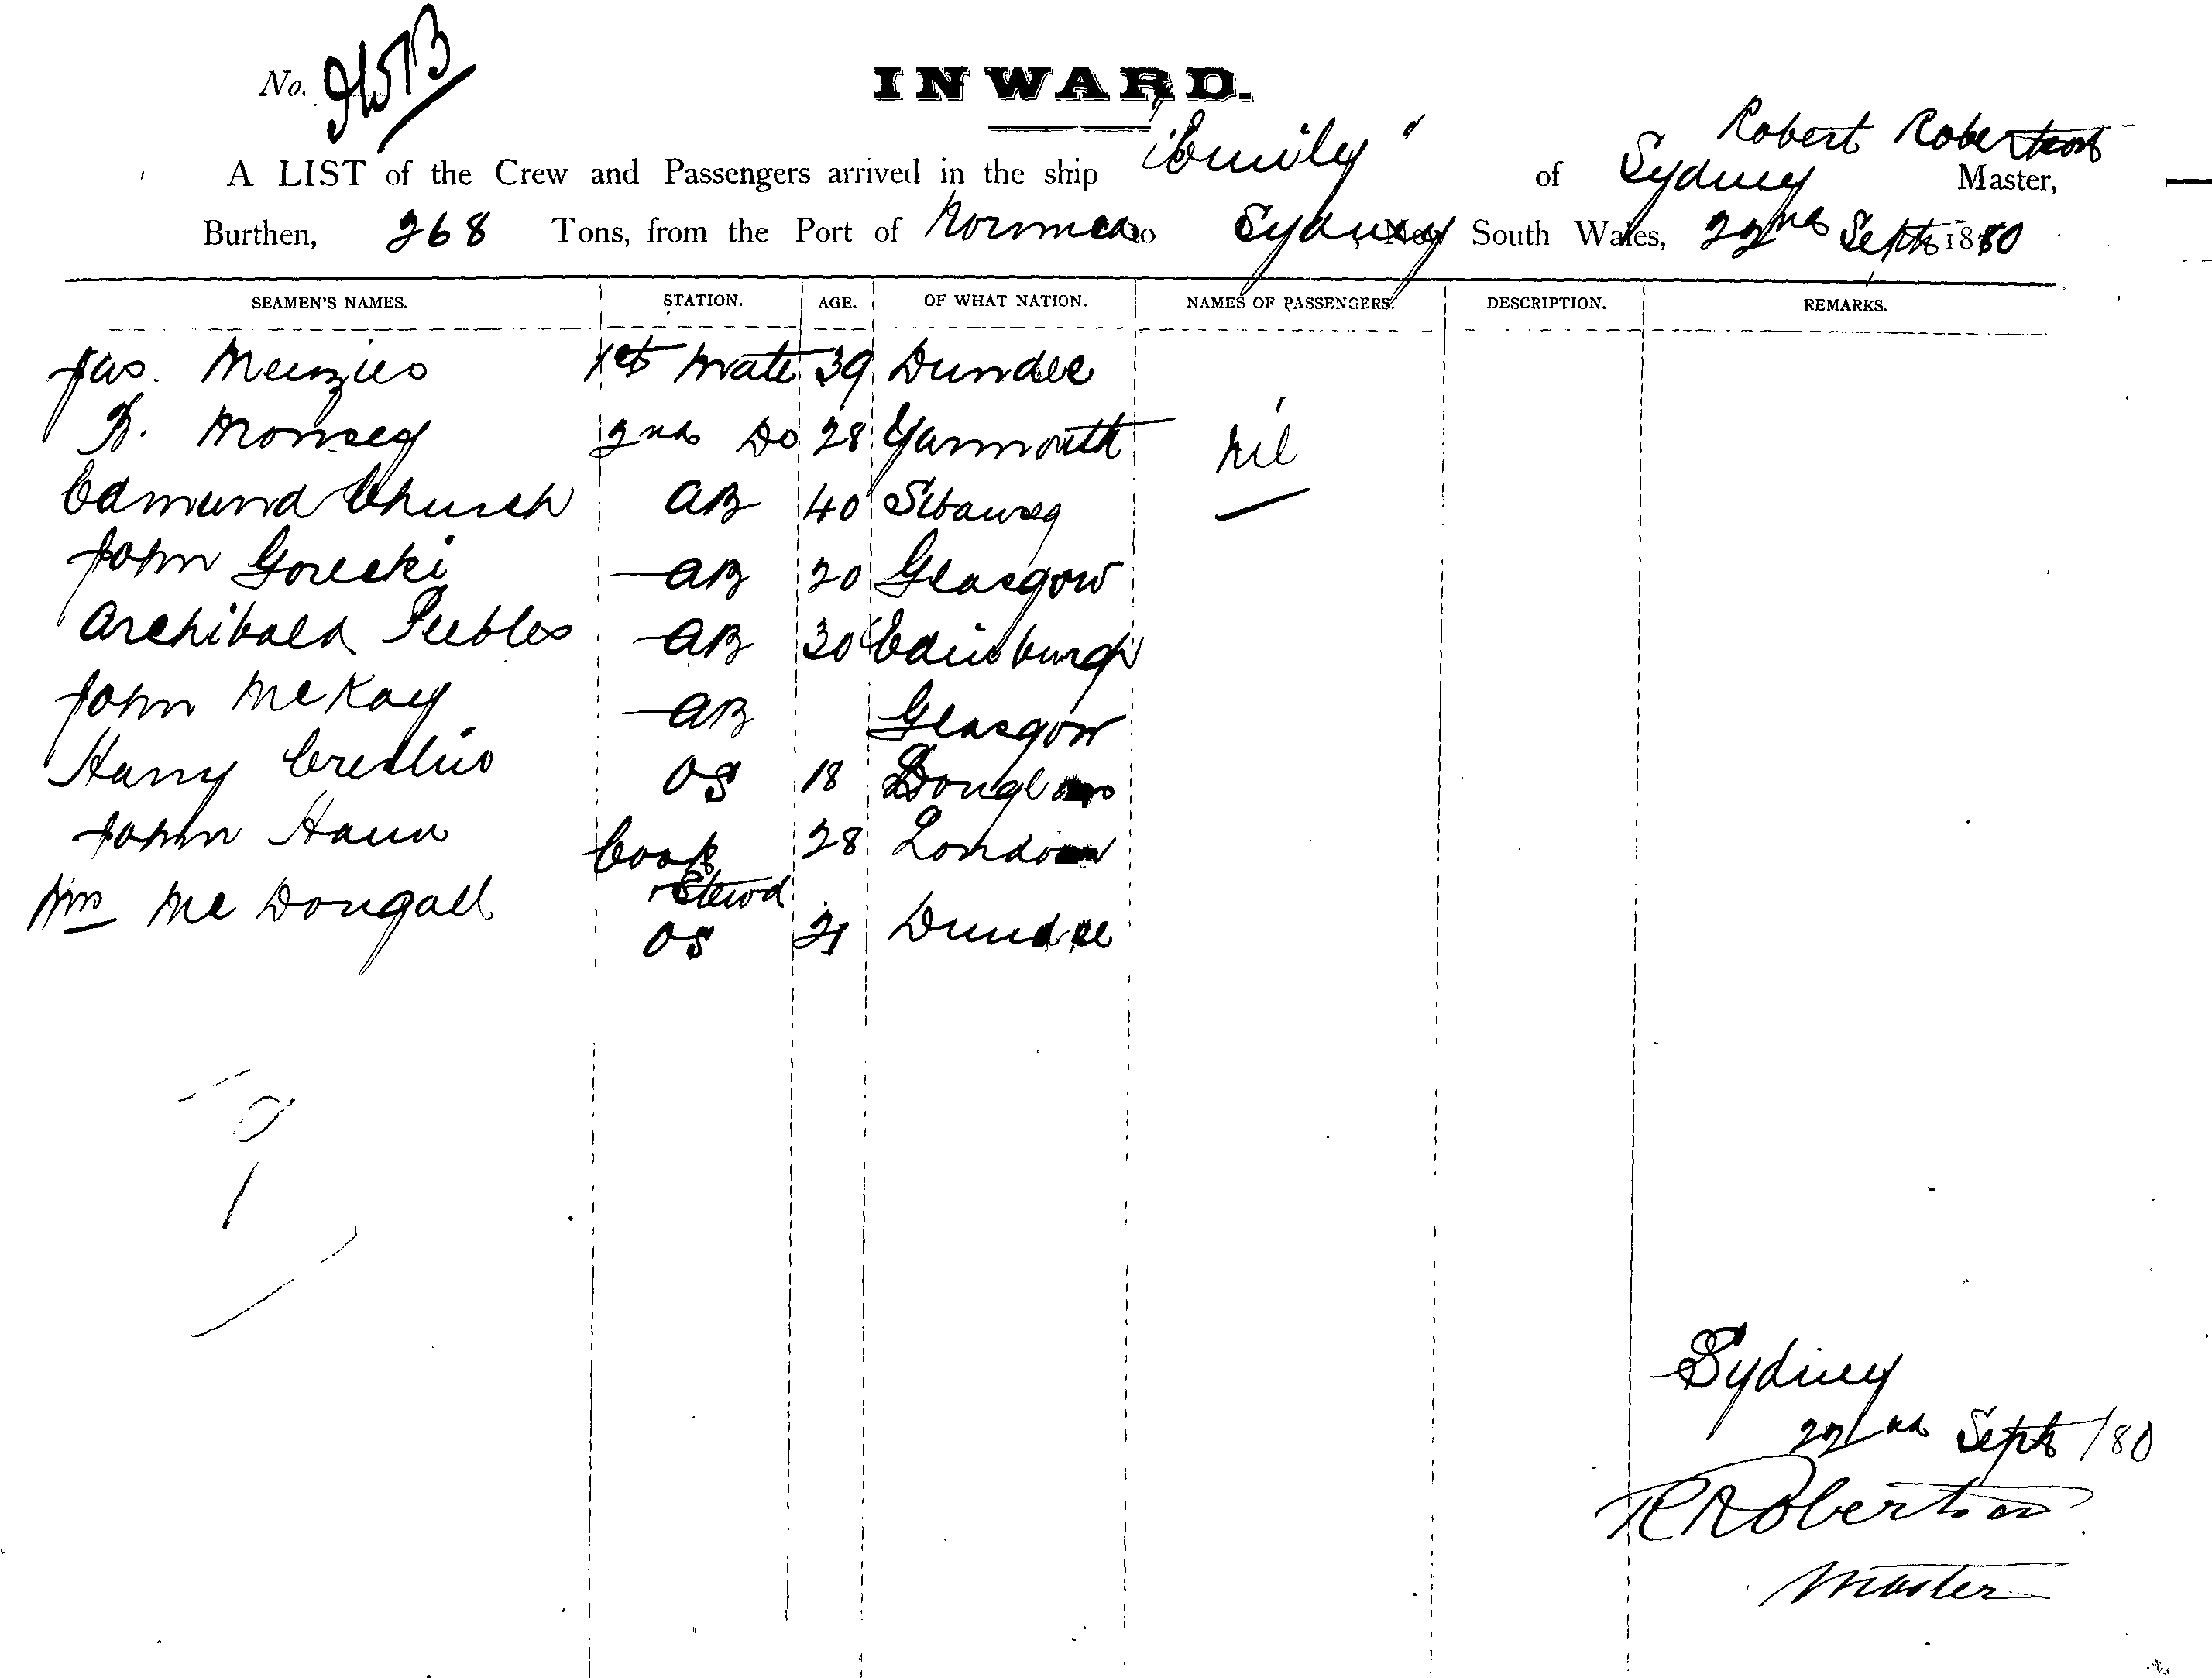 No.
INWARD.
Robert Robertson
A LIST of the Crew and Passengers arrived in the ship "Emily" of Sydney Master,
Burthen, 268 Tons, from the Port of to Sydney, New South Wales, 22nd Sept 1880
SEAMEN'S NAMES. STATION. AGE. OF WHAT NATION. NAMES OF PASSENGERS. DESCRIPTION. REMARKS.
Jas. Menzies 1st Mate 39 Dundee
Monsey 2nd Do 28 Yarmouth nil
Edmund Church AB 40
John AB 20 Glasgow
Archibald Peebles AB 30 Edinburgh
John McKay AB Glasgow
Harry OS 18 Douglas
John Hann Cook 28 London
Stewd
Wm McDougall OS 21 Dundee
Sydney
22nd Sept /80
R Robertson
Master